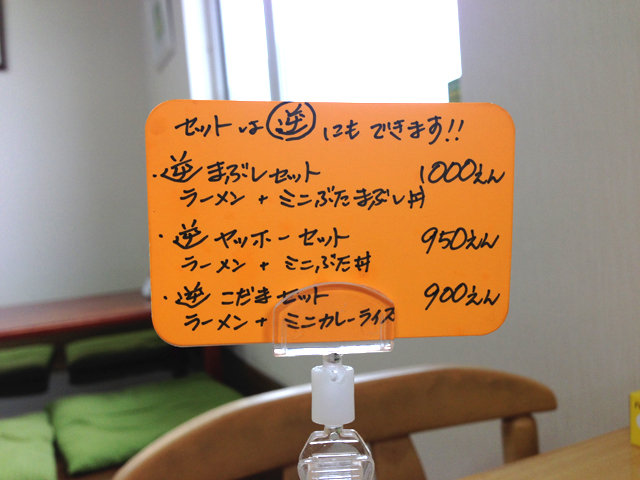 セットは逆にもできます!!
・逆まぶしセット 1000えん
ラーメン + ミニぶたまぶし丼
・逆ヤッホーセット 950えん
ラーメン + ミニぶた丼
・逆こだまセット 900えん
ラーメン + ミニカレーライス